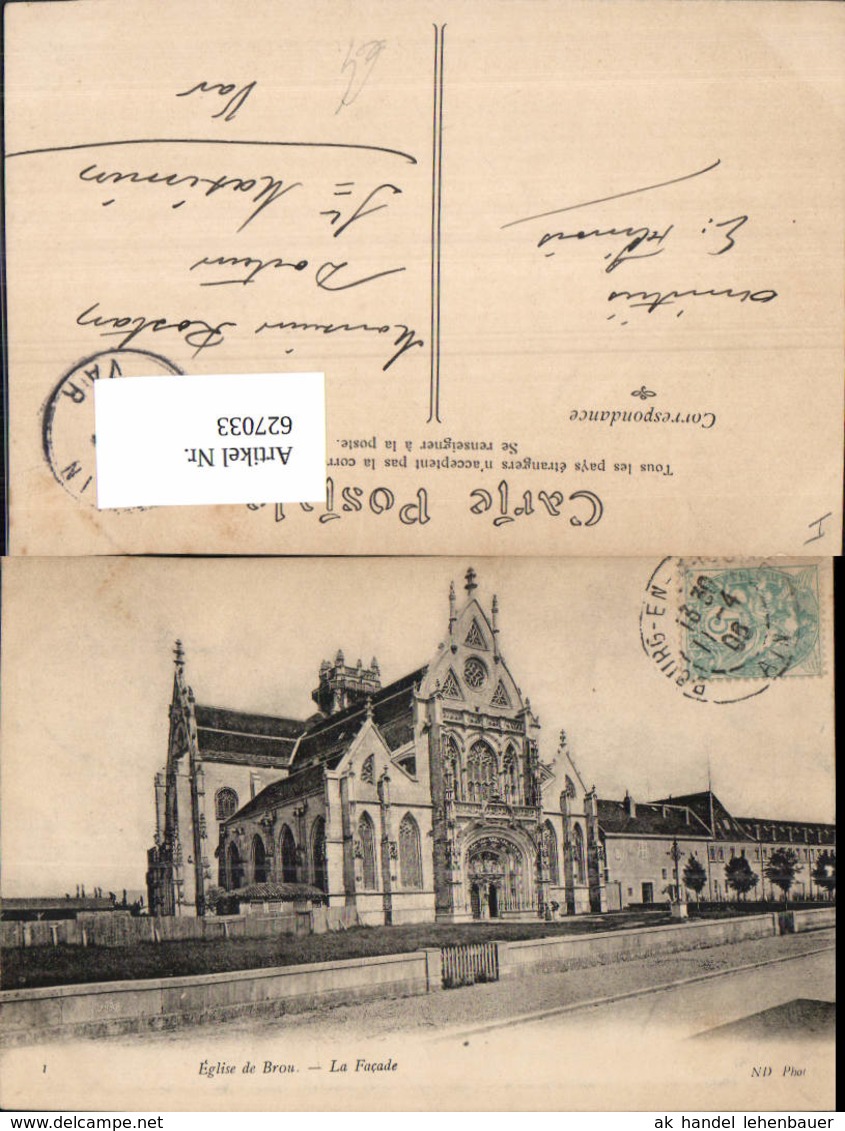 Carte Postale
Tous les pays étrangers n'acceptent pas la corr
Se renseigner à la poste.
Correspondance
Amitiés
E.
Monsieur Rostan
Docteur
St Maximin
Var
VAR
IN
Artikel Nr.
627033
BOURG-EN-
18 30
11-4
06
AIN
1
Église de Brou. — La Façade
ND Phot
ak handel lehenbauer